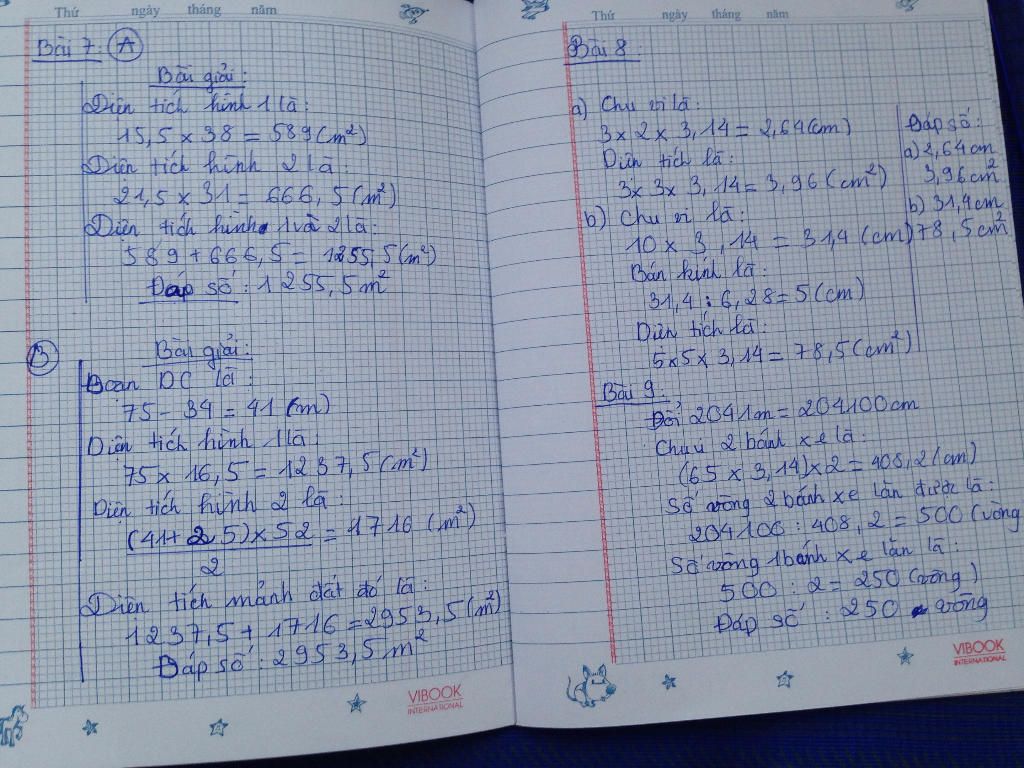 Thứ ngày tháng năm
Bài 7: A
Bài giải:
Diện tích hình 1 là:
15,5 x 38 = 589 (m²)
Diện tích hình 2 là:
21,5 x 31 = 666,5 (m²)
Diện tích hình 1 và 2 là:
589 + 666,5 = 1255,5 (m²)
Đáp số: 1255,5 m²
B
Bài giải:
Đoạn DC là:
75 - 34 = 41 (m)
Diện tích hình 1 là:
75 x 16,5 = 1237,5 (m²)
Diện tích hình 2 là:
(41 + 25) x 52 = 1716 (m²)
2
Diện tích mảnh đất đó là:
1237,5 + 1716 = 2953,5 (m²)
Đáp số: 2953,5 m²
VIBOOK
INTERNATIONAL
Thứ ngày tháng năm
Bài 8:
a) Chu vi là:
3 x 2 x 3,14 = 2,64 (cm)
Diện tích là:
3 x 3 x 3,14 = 3,96 (cm²)
b) Chu vi là:
10 x 3,14 = 31,4 (cm)
Bán kính là:
31,4 : 6,28 = 5 (cm)
Diện tích là:
5 x 5 x 3,14 = 78,5 (cm²)
Đáp số:
a) 2,64 cm
3,96 cm²
b) 31,4 cm
78,5 cm²
Bài 9:
Đổi 2041m = 204100cm
Chu vi 2 bánh xe là:
(65 x 3,14) x 2 = 408,2 (cm)
Số vòng 2 bánh xe lăn được là:
204100 : 408,2 = 500 (vòng
Số vòng 1 bánh xe lăn là:
500 : 2 = 250 (vòng)
Đáp số: 250 vòng
VIBOOK
INTERNATIONAL